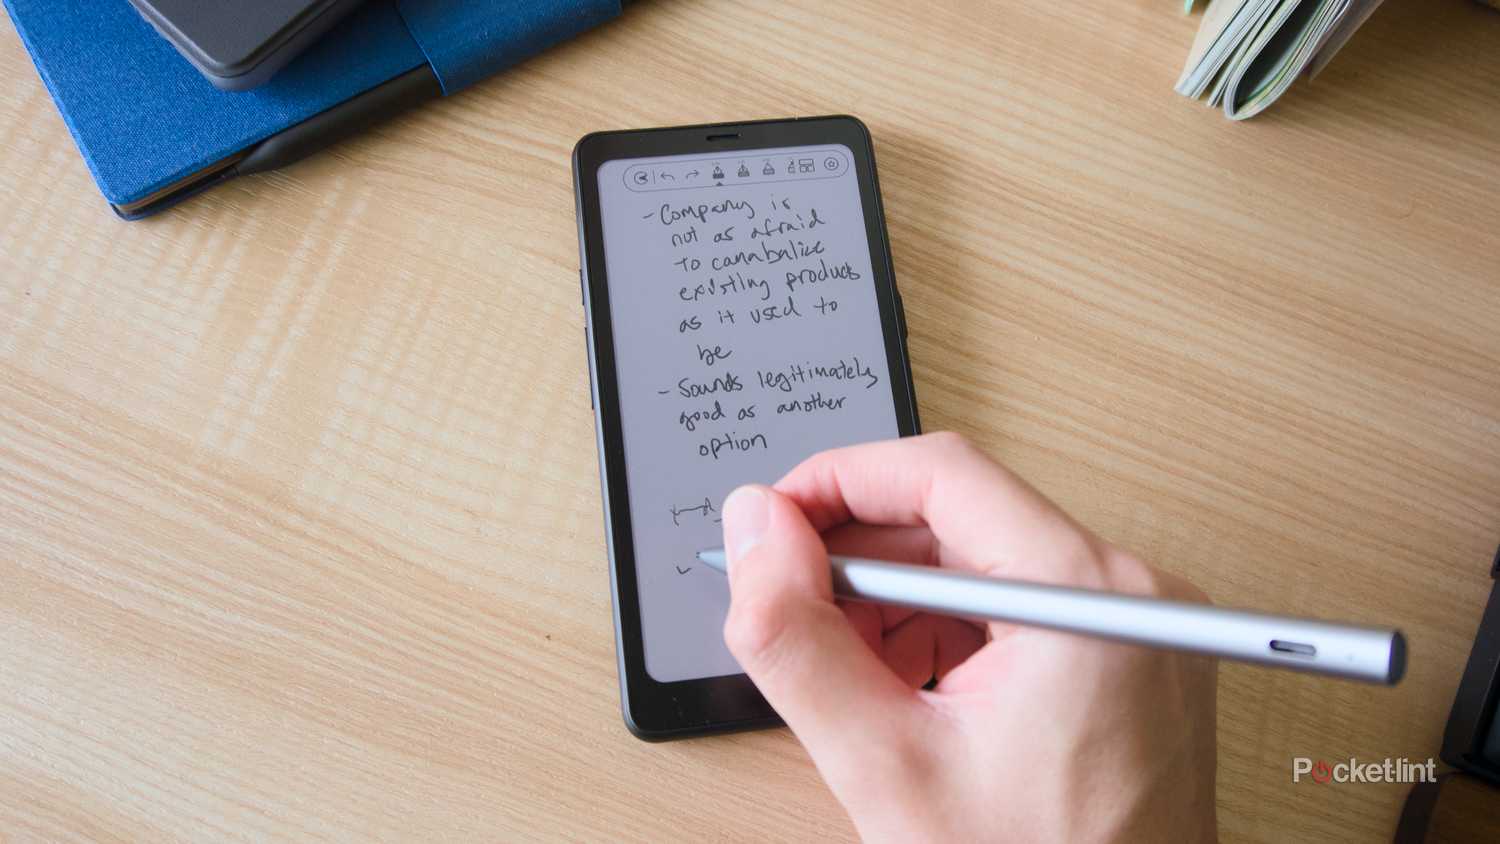 - Company is
not as afraid
to canabalize
existing products
as it used to
be
- Sounds legitimately
good as another
option
Pocket-lint